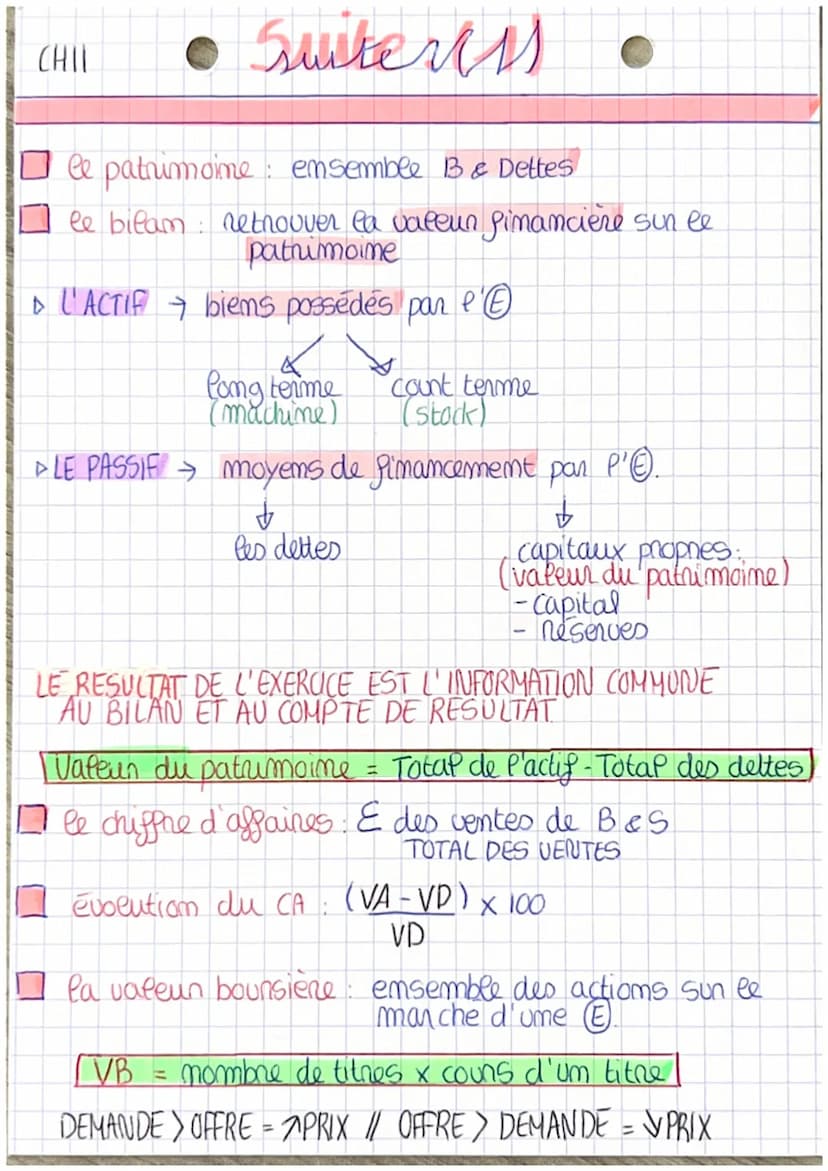 CH11
Suite (1)
le patrimoine : ensemble B & Dettes
le bilan : retrouver la valeur financière sur le
patrimoine
▷ L'ACTIF → biens possédés par l'Ⓔ
long terme court terme
(machine) (stock)
▷ LE PASSIF → moyens de financement par l'Ⓔ.
↓ ↓
les dettes capitaux propres :
(valeur du patrimoine)
- capital
- réserves
LE RESULTAT DE L'EXERCICE EST L'INFORMATION COMMUNE
AU BILAN ET AU COMPTE DE RESULTAT
Valeur du patrimoine = Total de l'actif - Total des dettes
le chiffre d'affaires : Σ des ventes de B & S
TOTAL DES VENTES
évolution du CA : (VA - VD) x 100
VD
la valeur boursière : ensemble des actions sur le
marche d'une Ⓔ.
VB = nombre de titres x cours d'un titre
DEMANDE > OFFRE = ↗PRIX // OFFRE > DEMANDE = ↘PRIX